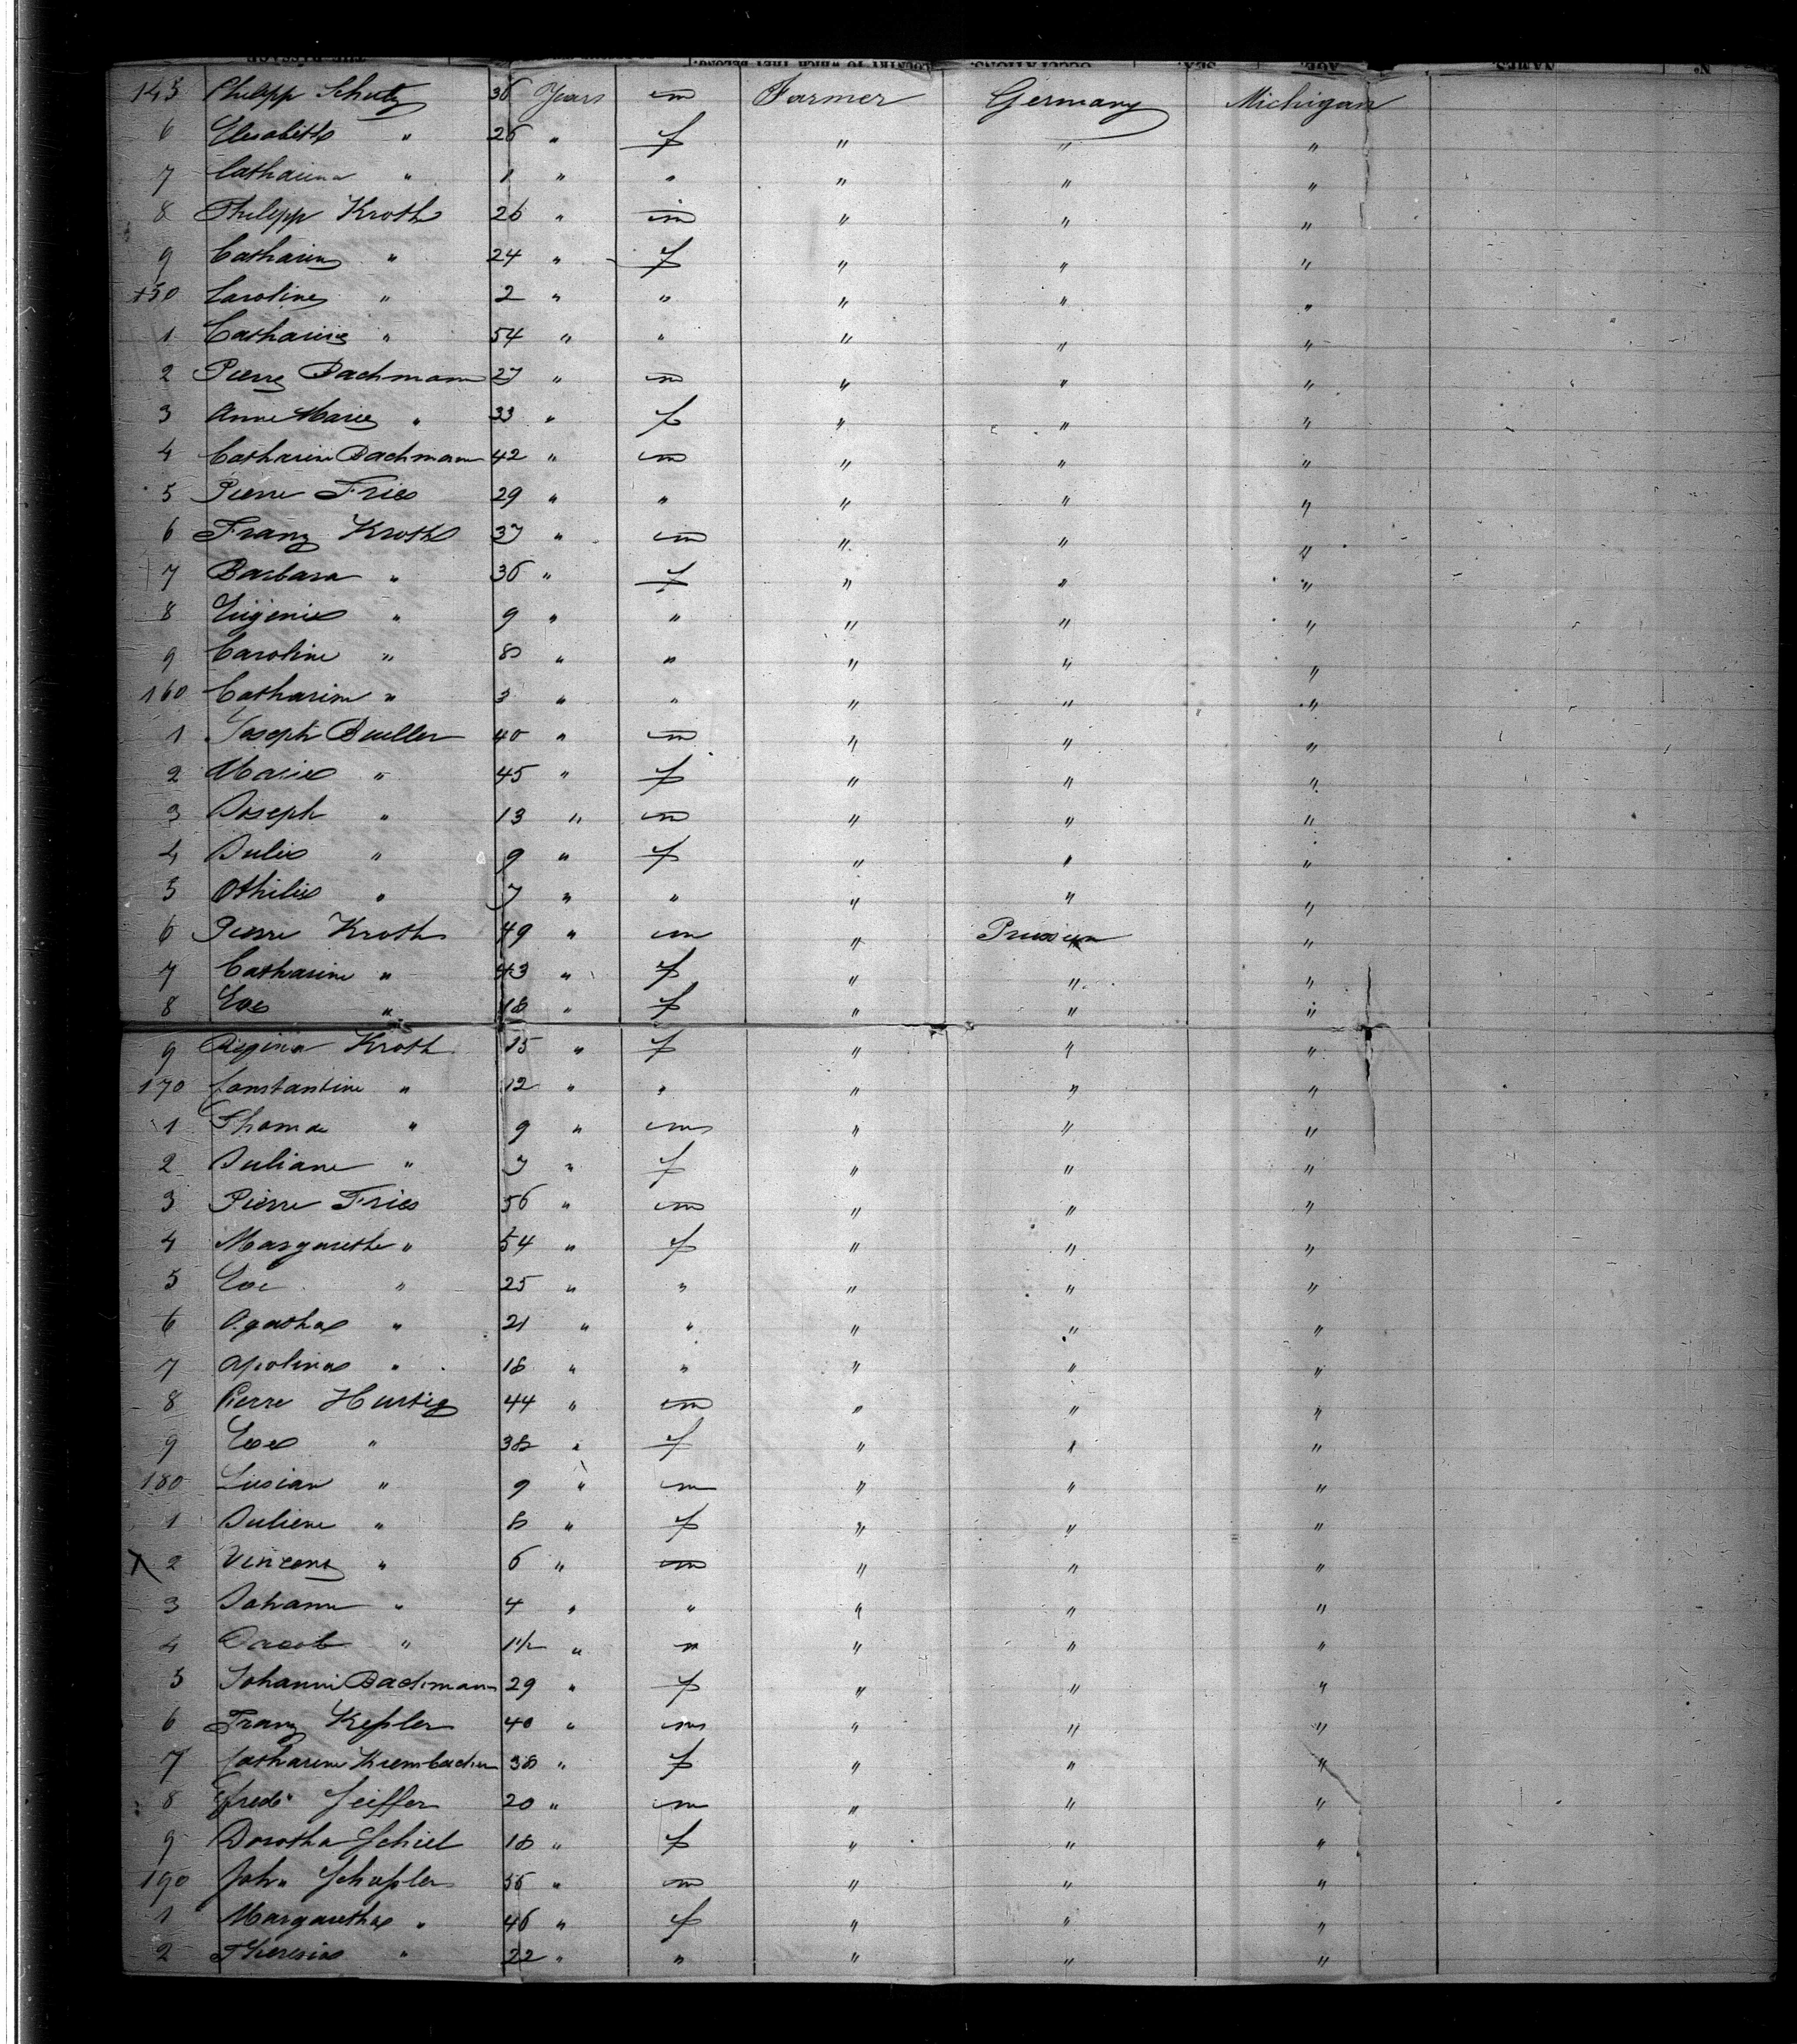 145 Philipp Schutz 36 Years m Farmer Germany Michigan
6 Elisabeth " 26 " f " " "
7 Catharina " 1 " " " " "
8 Philipp Kroth 26 " m " " "
9 Catharine " 24 " f " " "
150 Caroline " 2 " " " " "
1 Catharine " 54 " " " " "
2 Pierre Bachmann 27 " m " " "
3 Anne Marie " 33 " f " " "
4 Catharine Bachmann 42 " m " " "
5 Pierre Fries 29 " " " " "
6 Franz Kroth 37 " m " " "
7 Barbara " 36 " f " " "
8 Eugenie " 9 " " " " "
9 Caroline " 8 " " " " "
160 Catharine " 3 " " " " "
1 Joseph Bueller 40 " m " " "
2 Marie " 45 " f " " "
3 Joseph " 13 " m " " "
4 Julie " 9 " f " " "
5 Othilie " 7 " " " " "
6 Pierre Kroth 49 " m " Prussian "
7 Catharine " 43 " f " " "
8 Eve " 18 " f " " "
9 Regina Kroth 15 " f " " "
170 Constantine " 12 " " " " "
1 Thoma " 9 " m " " "
2 Juliane " 7 " f " " "
3 Pierre Fries 56 " m " " "
4 Margarethe " 54 " f " " "
5 Eve " 25 " " " " "
6 Agatha " 21 " " " " "
7 Apolina " 18 " " " " "
8 Pierre Hurtig 44 " m " " "
9 Eve " 38 " f " " "
180 Lusian " 9 " m " " "
1 Juliene " 8 " f " " "
X 2 Vincenz " 6 " m " " "
3 Johann " 4 " " " " "
4 Jacob " 1 1/2 " " " " "
5 Johanni Bachmann 29 " f " " "
6 Franz Kepler 40 " m " " "
7 Catharine Krembacher 38 " f " " "
8 Fred. Seiffer 20 " m " " "
9 Dorotha Schiel 18 " f " " "
190 John Schafler 56 " m " " "
1 Margaretha " 46 " f " " "
2 Theresia " 22 " " " " "